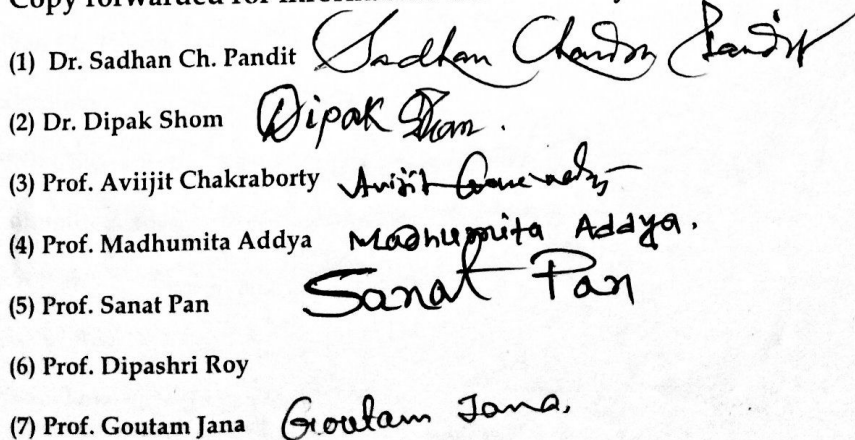 Copy forwarded for
(1) Dr. Sadhan Ch. Pandit Sadhan Chandra Pandit
(2) Dr. Dipak Shom Dipak Shom.
(3) Prof. Aviijit Chakraborty Avijit
(4) Prof. Madhumita Addya Madhumita Addya.
(5) Prof. Sanat Pan Sanat Pan
(6) Prof. Dipashri Roy
(7) Prof. Goutam Jana Goutam Jana.